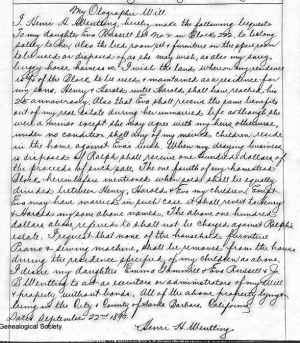 My Olographic Will.
I Henri H. Wentling, hereby make the following bequests
To my daughter Eva Russell lot No 2 in Block 232, to belong
solely to her, also the bed room set & furniture in the spare room
to be used or disposed of as she may wish, as also my surrey,
buggy horse, harness &c. I wish the land whereon my residence
is of the Block, to be used & maintained as a residence for
my sons, Henry & Harold until Harold shall have reached his
25th anniversary. Also that Eva shall receive the same benefits
out of my real estate during her unmarried life as though she
were a minor except she shall agree with my heirs otherwise,
under no condition shall any of my married children reside
in the home against Eva's wish. When my business
is disposed of Ralph shall receive one hundred dollars of
the proceeds of such sale. The one fourth of my homestead
Block hereinbefore mentioned when sold shall be equally
divided between Henry, Harold & Eva my children, except
Eva may have married in such case it shall revert to Henry
& Harold my sons above named. The above one hundred
dollars above referred to shall not be charged against Ralph's
estate. I request that none of the household furniture
Piano & sewing machine, shall be removed from the house
during the residence specified, of my children as above,
I desire my daughters Emma Gammill & Eva Russell & J.
E Wentling to act as executors or administrators of my Will
& property without bonds, All of the above property lying &
being in the City & County of Santa Barbara, California,
Dated September 22nd
Henri H. Wentling
Genealogical Society